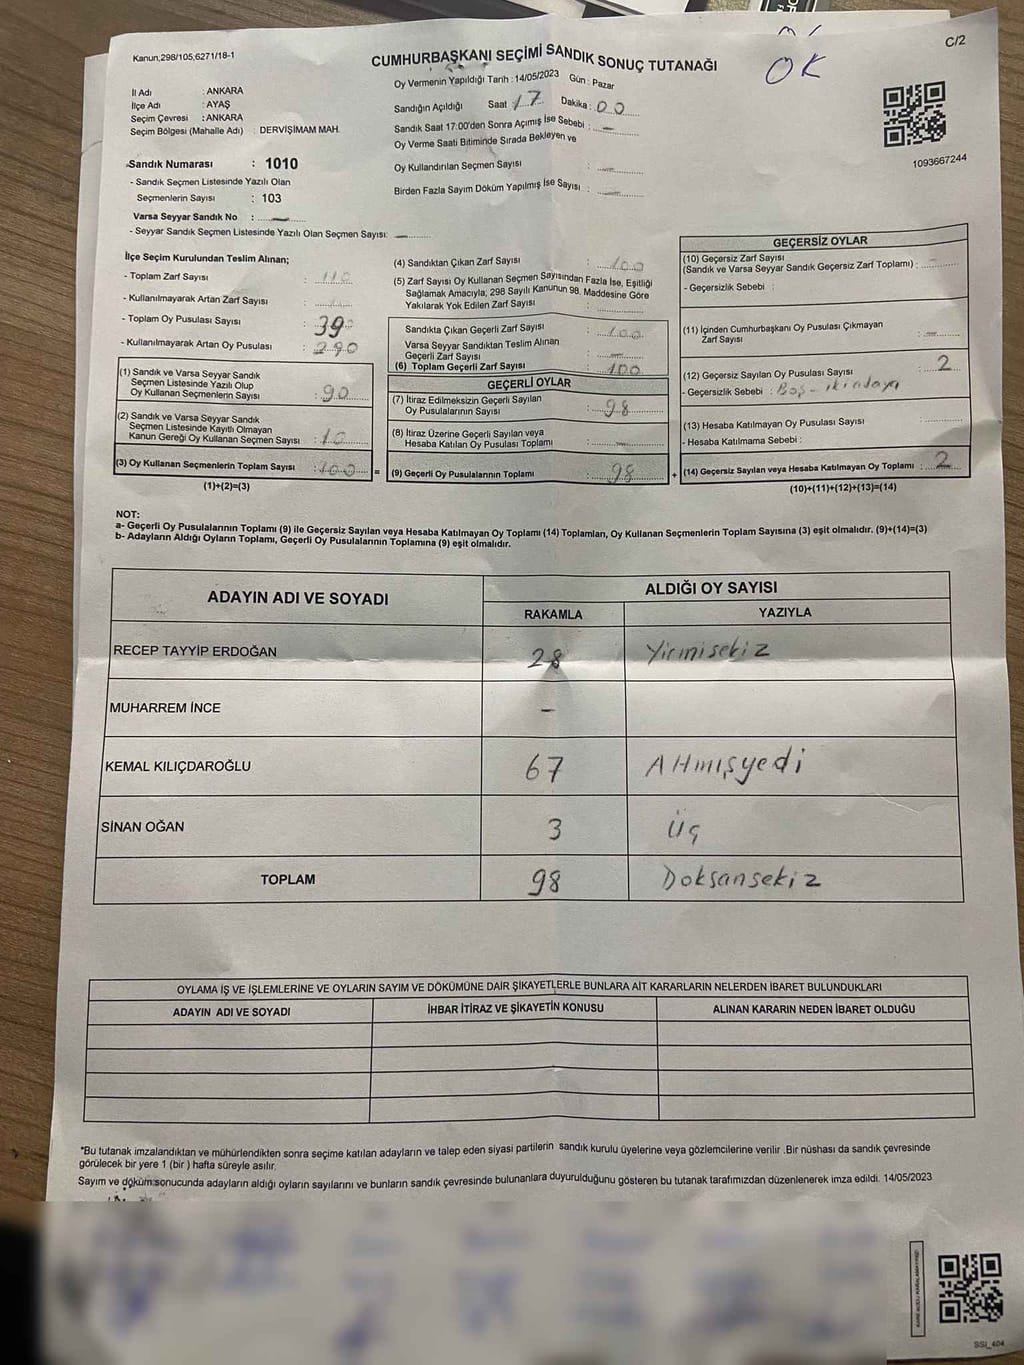 Kanun,298/105;6271/18-1
CUMHURBAŞKANI SEÇİMİ SANDIK SONUÇ TUTANAĞI
ÖK
C/2
Oy Vermenin Yapıldığı Tarih : 14/05/2023 Gün : Pazar
İl Adı : ANKARA
İlçe Adı : AYAŞ
Seçim Çevresi : ANKARA
Seçim Bölgesi (Mahalle Adı) : DERVİŞİMAM MAH.
Sandığın Açıldığı Saat : 17 Dakika : 00
Sandık Saat 17:00'den Sonra Açımış İse Sebebi : —
Oy Verme Saati Bitiminde Sırada Bekleyen ve
Oy Kullandırılan Seçmen Sayısı : —
Birden Fazla Sayım Döküm Yapılmış İse Sayısı : —
1093667244
Sandık Numarası : 1010
- Sandık Seçmen Listesinde Yazılı Olan
Seçmenlerin Sayısı : 103
Varsa Seyyar Sandık No : —
- Seyyar Sandık Seçmen Listesinde Yazılı Olan Seçmen Sayısı: —
İlçe Seçim Kurulundan Teslim Alınan;
- Toplam Zarf Sayısı : 110
- Kullanılmayarak Artan Zarf Sayısı :
- Toplam Oy Pusulası Sayısı : 390
- Kullanılmayarak Artan Oy Pusulası : 290
(1) Sandık ve Varsa Seyyar Sandık
Seçmen Listesinde Yazılı Olup
Oy Kullanan Seçmenlerin Sayısı : 90
(2) Sandık ve Varsa Seyyar Sandık
Seçmen Listesinde Kayıtlı Olmayan
Kanun Gereği Oy Kullanan Seçmen Sayısı : 10
(3) Oy Kullanan Seçmenlerin Toplam Sayısı : 100 =
(1)+(2)=(3)
(4) Sandıktan Çıkan Zarf Sayısı : 100
(5) Zarf Sayısı Oy Kullanan Seçmen Sayısından Fazla İse, Eşitliği
Sağlamak Amacıyla; 298 Sayılı Kanunun 98. Maddesine Göre
Yakılarak Yok Edilen Zarf Sayısı :
Sandıkta Çıkan Geçerli Zarf Sayısı : 100
Varsa Seyyar Sandıktan Teslim Alınan
Geçerli Zarf Sayısı : —
(6) Toplam Geçerli Zarf Sayısı : 100
GEÇERLİ OYLAR
(7) İtiraz Edilmeksizin Geçerli Sayılan
Oy Pusulalarının Sayısı : 98
(8) İtiraz Üzerine Geçerli Sayılan veya
Hesaba Katılan Oy Pusulası Toplamı : —
(9) Geçerli Oy Pusulalarının Toplamı : 98 +
GEÇERSİZ OYLAR
(10) Geçersiz Zarf Sayısı
(Sandık ve Varsa Seyyar Sandık Geçersiz Zarf Toplamı) : —
- Geçersizlik Sebebi :
(11) İçinden Cumhurbaşkanı Oy Pusulası Çıkmayan
Zarf Sayısı : —
(12) Geçersiz Sayılan Oy Pusulası Sayısı : 2
- Geçersizlik Sebebi : Boş - iki adaya
(13) Hesaba Katılmayan Oy Pusulası Sayısı :
- Hesaba Katılmama Sebebi :
(14) Geçersiz Sayılan veya Hesaba Katılmayan Oy Toplamı : 2
(10)+(11)+(12)+(13)=(14)
NOT:
a- Geçerli Oy Pusulalarının Toplamı (9) ile Geçersiz Sayılan veya Hesaba Katılmayan Oy Toplamı (14) Toplamları, Oy Kullanan Seçmenlerin Toplam Sayısına (3) eşit olmalıdır. (9)+(14)=(3)
b- Adayların Aldığı Oyların Toplamı, Geçerli Oy Pusulalarının Toplamına (9) eşit olmalıdır.
ADAYIN ADI VE SOYADI ALDIĞI OY SAYISI
RAKAMLA YAZIYLA
RECEP TAYYİP ERDOĞAN 28 Yirmisekiz
MUHARREM İNCE –
KEMAL KILIÇDAROĞLU 67 Altmışyedi
SİNAN OĞAN 3 Üç
TOPLAM 98 Doksansekiz
OYLAMA İŞ VE İŞLEMLERİNE VE OYLARIN SAYIM VE DÖKÜMÜNE DAİR ŞİKAYETLERLE BUNLARA AİT KARARLARIN NELERDEN İBARET BULUNDUKLARI
ADAYIN ADI VE SOYADI İHBAR İTİRAZ VE ŞİKAYETİN KONUSU ALINAN KARARIN NEDEN İBARET OLDUĞU
*Bu tutanak imzalandıktan ve mühürlendikten sonra seçime katılan adayların ve talep eden siyasi partilerin sandık kurulu üyelerine veya gözlemcilerine verilir .Bir nüshası da sandık çevresinde
görülecek bir yere 1 (bir ) hafta süreyle asılır.
Sayım ve döküm sonucunda adayların aldığı oyların sayılarını ve bunların sandık çevresinde bulunanlara duyurulduğunu gösteren bu tutanak tarafımızdan düzenlenerek imza edildi. 14/05/2023
SSI_404